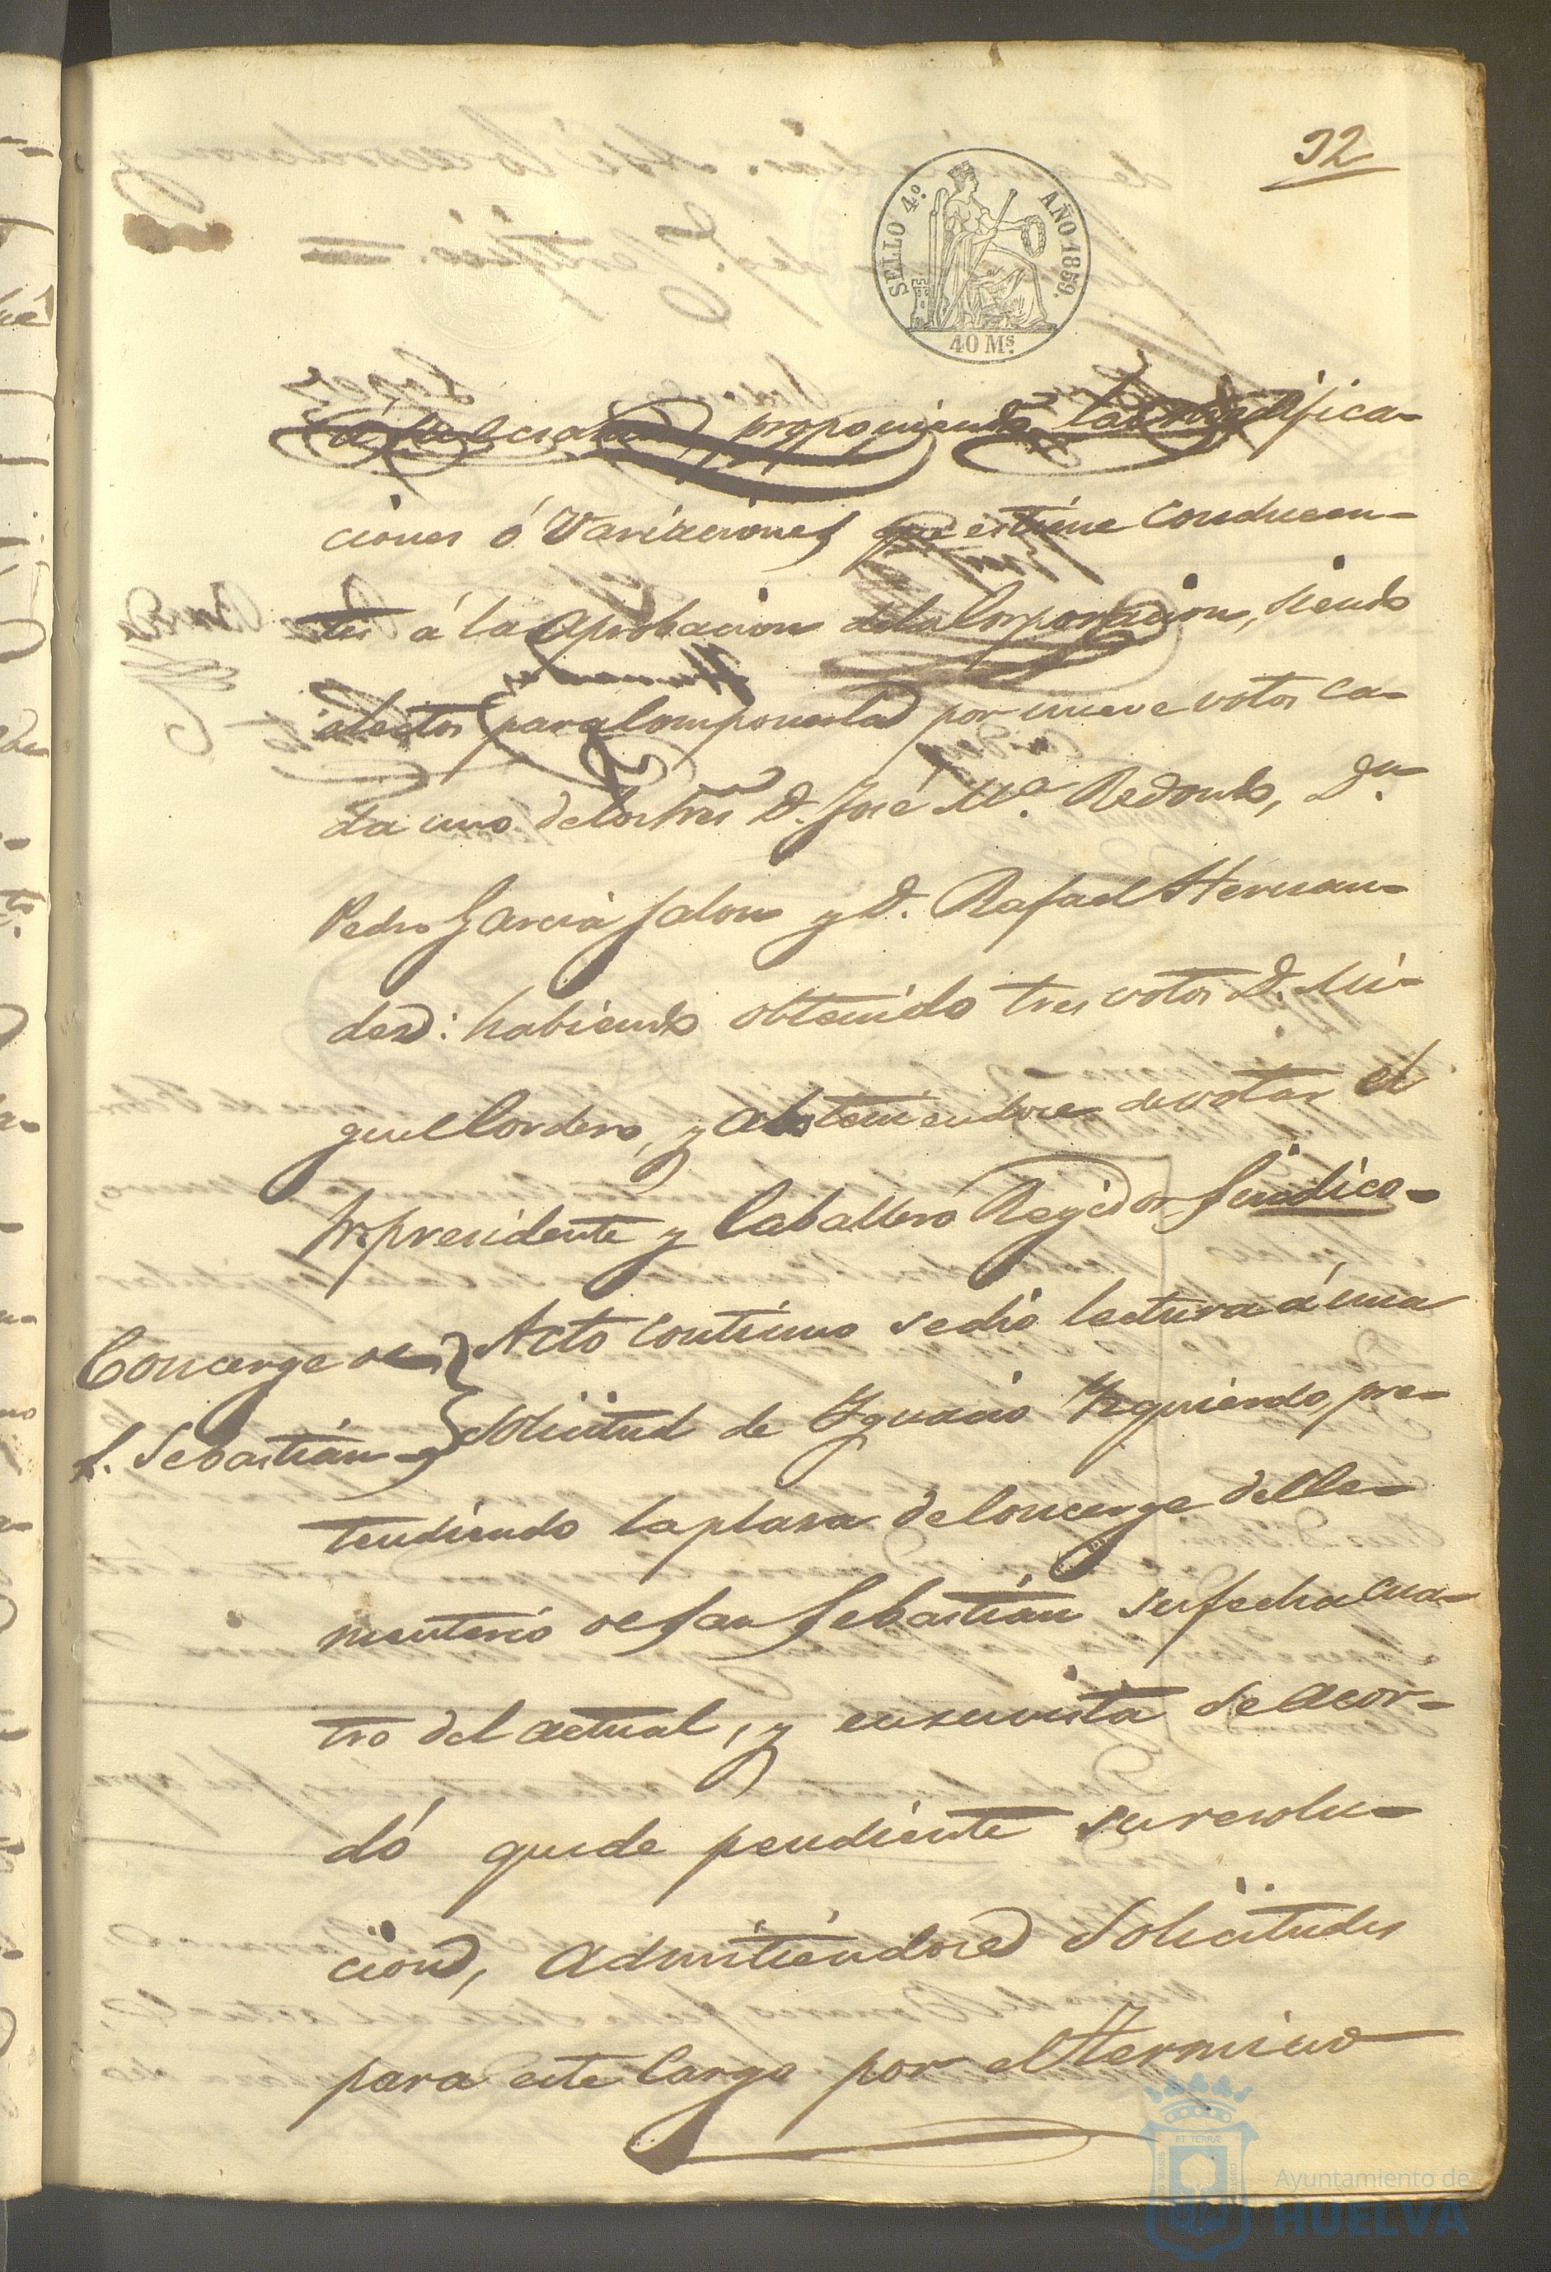 32
SELLO 4.º AÑO 1859.
40 Ms.
proponiendo las modifica-
ciones ó Variaciones que estime conducen-
tes á la aprobacion dela Corporacion, siendo
electos para Componerla por nueve votos ca-
da uno delos tres D. José Mª Redondo, Dn.
Pedro Garcia Jalon y D. Rafael Hernan-
dez: habiendo obtenido tres votos D. Mi-
guel Cordero, y absteniendose de votar el
Sr. presidente y Caballero Regidor Sindico-
Concerge de
S. Sebastián
Acto continuo se dió lectura á una
Solicitud de Ygnacio Yzquierdo, pre-
tendiendo la plaza de Concerge del Ce-
menterio de San Sebastián su fecha cua-
tro del actual, y en su vista se acor-
dó quede pendiente su resolu-
cion, admitiendose Solicitudes
para este Cargo por el termino
Ayuntamiento de
HUELVA